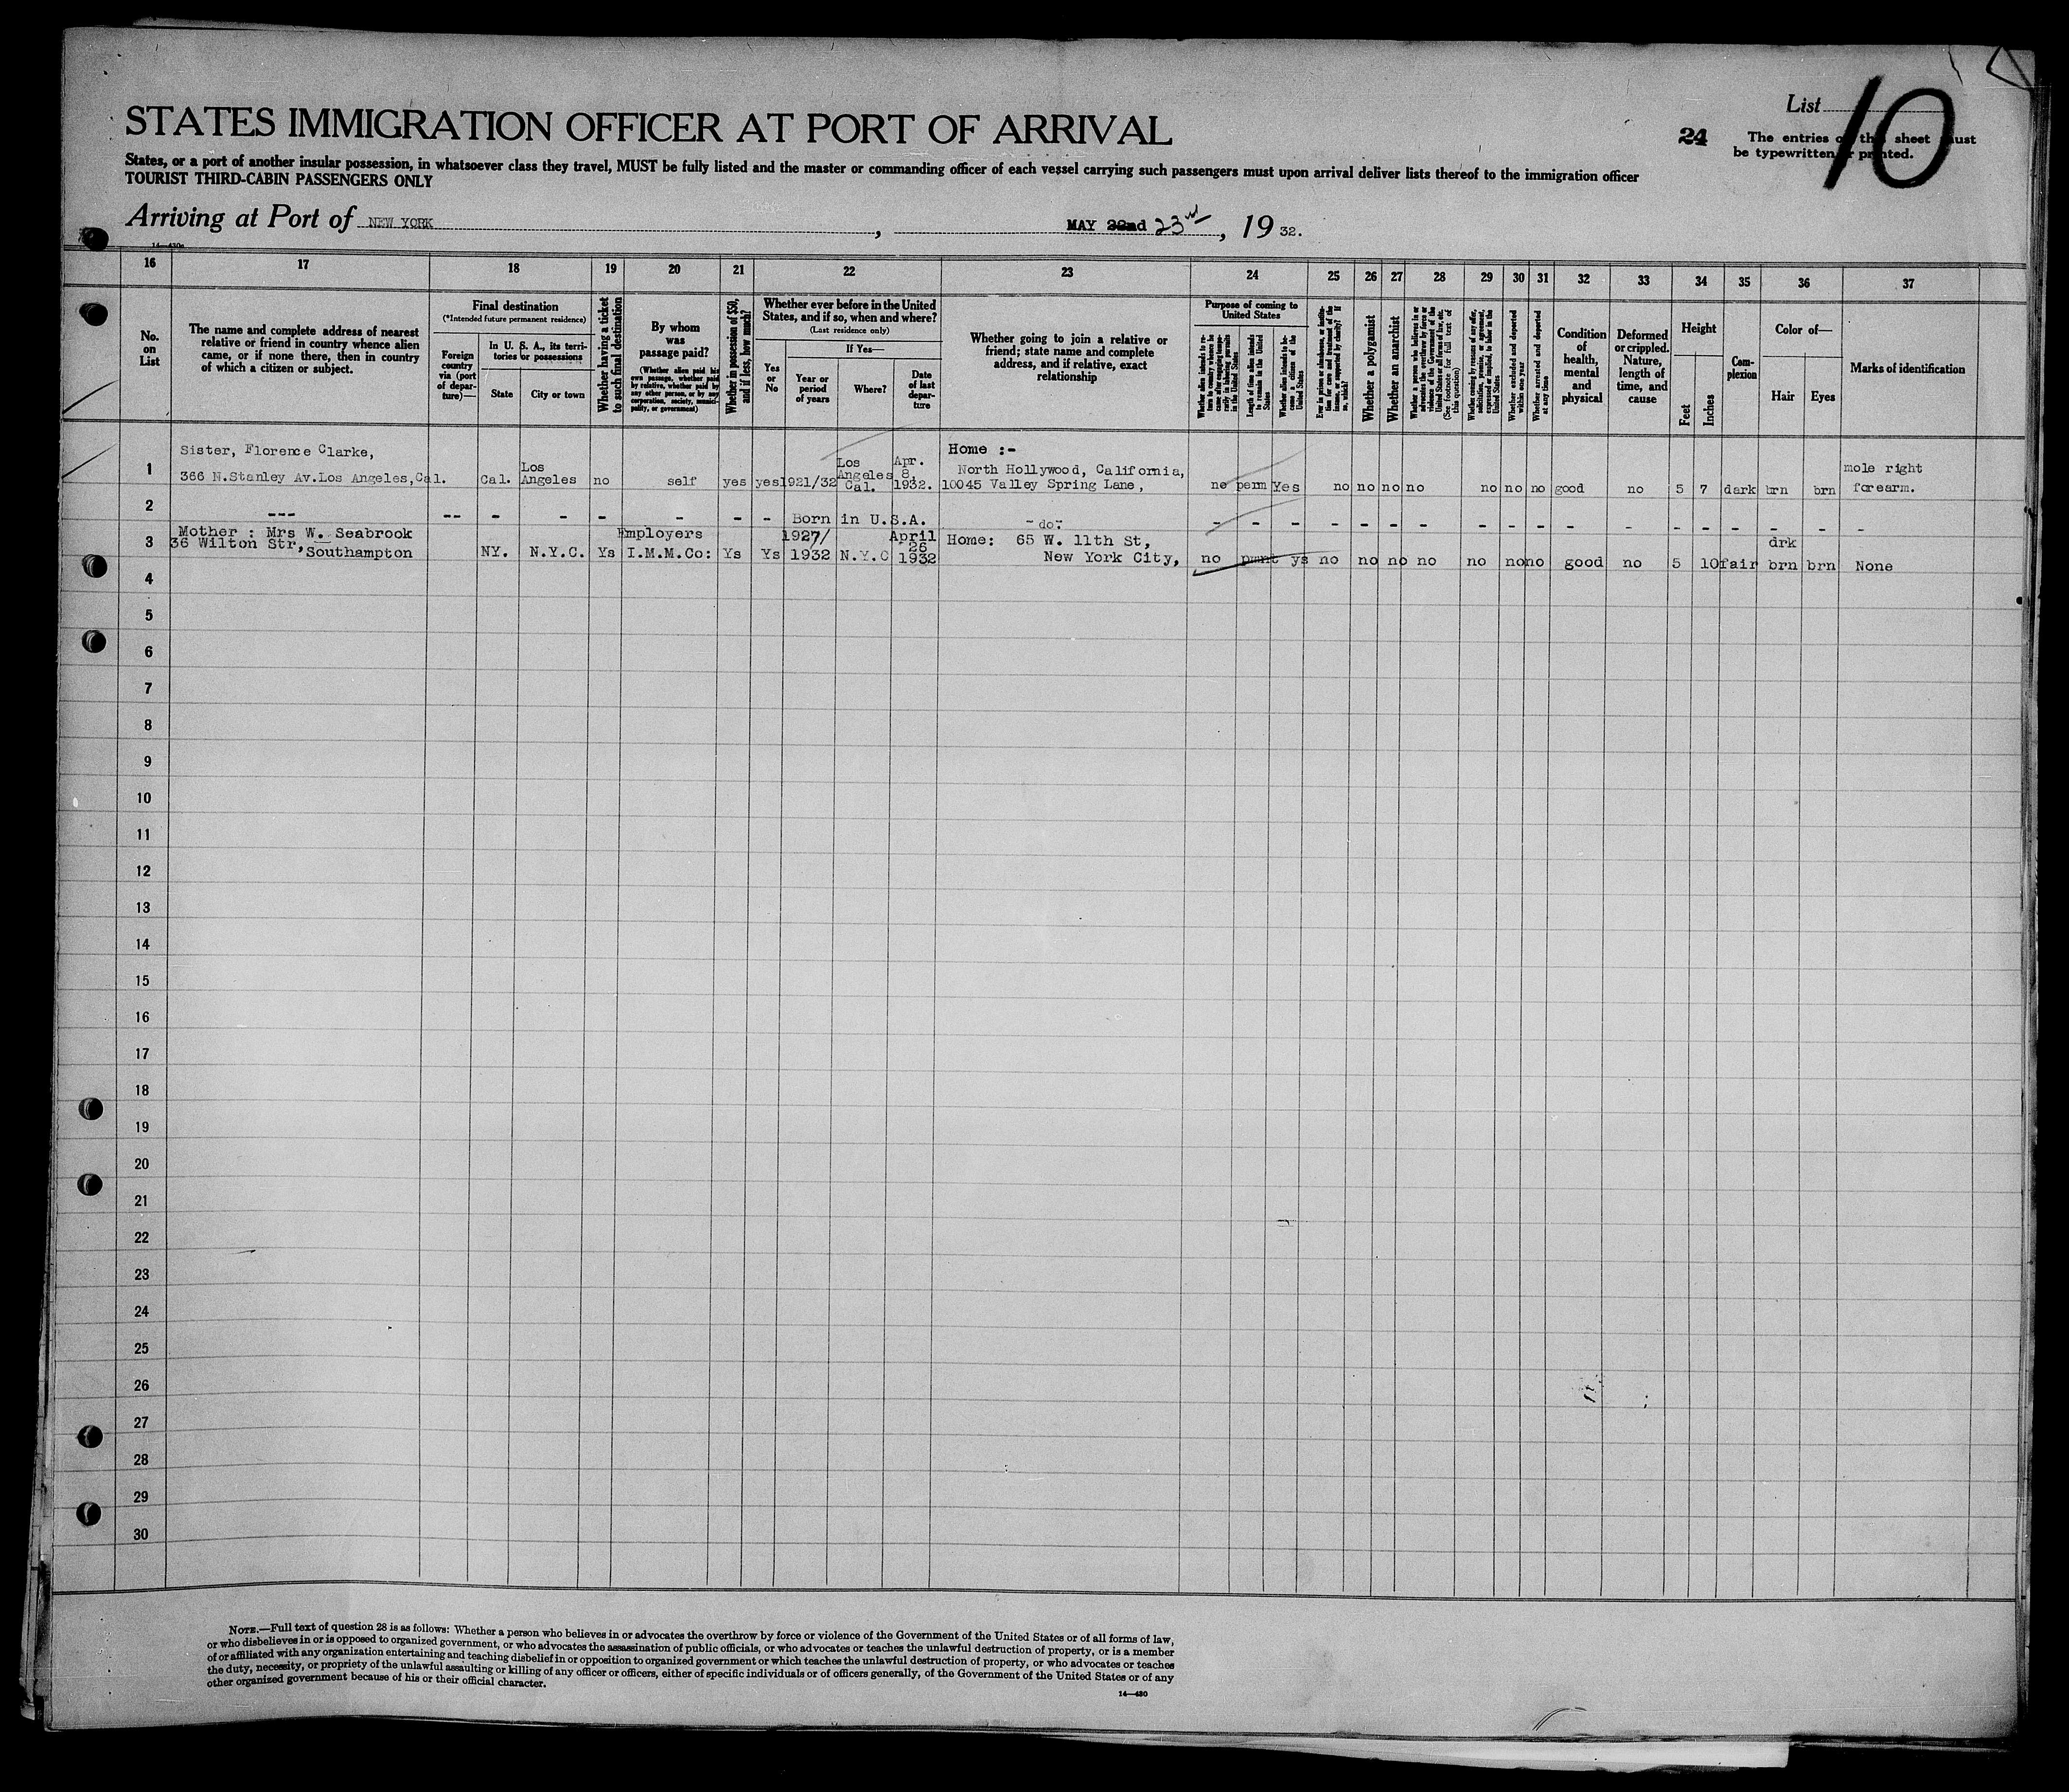 List 10
STATES IMMIGRATION OFFICER AT PORT OF ARRIVAL
24 The entries on this sheet must
be typewritten or printed.
States, or a port of another insular possession, in whatsoever class they travel, MUST be fully listed and the master or commanding officer of each vessel carrying such passengers must upon arrival deliver lists thereof to the immigration officer
TOURIST THIRD-CABIN PASSENGERS ONLY
Arriving at Port of NEW YORK, MAY 22nd 23rd, 1932.
14—430a
16 17 18 19 20 21 22 23 24 25 26 27 28 29 30 31 32 33 34 35 36 37
No. on List
The name and complete address of nearest relative or friend in country whence alien came, or if none there, then in country of which a citizen or subject.
Final destination
(*Intended future permanent residence)
Foreign country via (port of departure)—
In U. S. A., its territories or possessions
State
City or town
Whether having a ticket to such final destination
By whom was passage paid?
(Whether alien paid his own passage, whether paid by relative, whether paid by any other person, or by any corporation, society, municipality, or government)
Whether in possession of $50, and if less, how much?
Whether ever before in the United States, and if so, when and where?
(Last residence only)
Yes or No
If Yes—
Year or period of years
Where?
Date of last departure
Whether going to join a relative or friend; state name and complete address, and if relative, exact relationship
Purpose of coming to United States
Whether alien intends to return to country whence he came after engaging temporarily in laboring pursuits in the United States
Length of time alien intends to remain in the United States
Whether alien intends to become a citizen of the United States
Ever in prison or almshouse, or institution for care and treatment of the insane, or supported by charity? If so, which?
Whether a polygamist
Whether an anarchist
Whether a person who believes in or advocates the overthrow by force or violence of the Government of the United States or all forms of law, etc. (See footnote for full text of this question)
Whether coming by reason of any offer, solicitation, promise, or agreement, expressed or implied, to labor in the United States
Whether excluded and deported within one year
Whether arrested and deported at any time
Condition of health, mental and physical
Deformed or crippled. Nature, length of time, and cause
Height
Feet
Inches
Complexion
Color of—
Hair
Eyes
Marks of identification
1 Sister, Florence Clarke,
366 N.Stanley Av.Los Angeles,Cal. Cal. Los Angeles no self yes yes 1921/32 Los Angeles Cal. Apr. 8 1932. Home :- North Hollywood, California, 10045 Valley Spring Lane, no perm Yes no no no no no no no good no 5 7 dark brn brn mole right forearm.
2 --- -- - - - - - - Born in U.S.A. -do: - - - - - - - - - - - - - - - - - -
3 Mother : Mrs W. Seabrook
36 Wilton Str, Southampton NY. N.Y.C. Ys Employers I.M.M.Co: Ys Ys 1927/ 1932 N.Y.C April 26 1932 Home: 65 W. 11th St, New York City, no pmnt ys no no no no no no no good no 5 10 fair drk brn brn None
4
5
6
7
8
9
10
11
12
13
14
15
16
17
18
19
20
21
22
23
24
25
26
27
28
29
30
NOTE.—Full text of question 28 is as follows: Whether a person who believes in or advocates the overthrow by force or violence of the Government of the United States or of all forms of law,
or who disbelieves in or is opposed to organized government, or who advocates the assassination of public officials, or who advocates or teaches the unlawful destruction of property, or is a member
of or affiliated with any organization entertaining and teaching disbelief in or opposition to organized government or which teaches the unlawful destruction of property, or who advocates or teaches
the duty, necessity, or propriety of the unlawful assaulting or killing of any officer or officers, either of specific individuals or of officers generally, of the Government of the United States or of any
other organized government because of his or their official character.
14—430